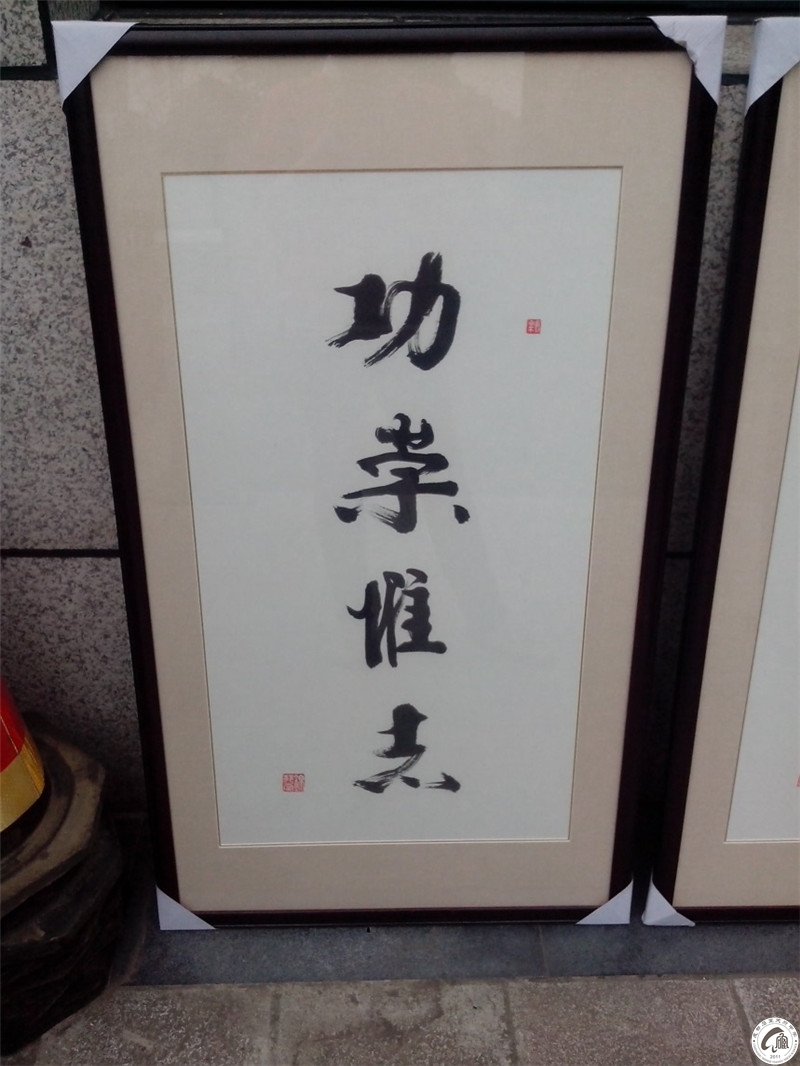 功崇惟志
2011